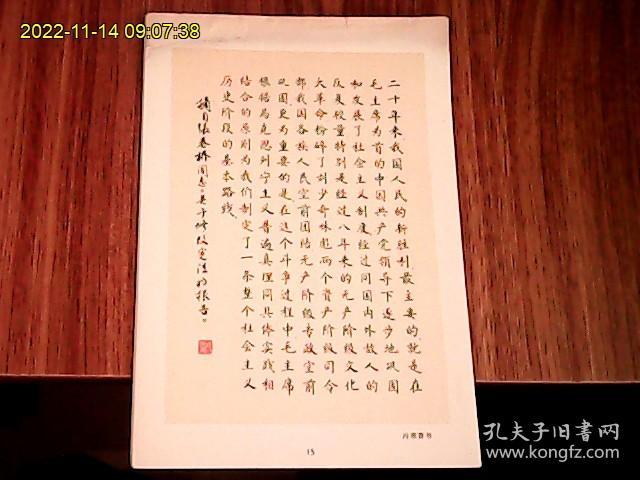 2022-11-14 09:07:38
二十年来我国人民的新胜利最主要的就是在
毛主席为首的中国共产党领导下逐步地巩固
和发展了社会主义制度经过同国内外敌人的
反复较量特别是经过八年来的无产阶级文化
大革命粉碎了刘少奇林彪两个资产阶级司令
部我国各族人民空前团结无产阶级专政空前
巩固更为重要的是在这个斗争过程中毛主席
根据马克思列宁主义普遍真理同具体实践相
结合的原则为我们制定了一条整个社会主义
历史阶段的基本路线
摘自张春桥同志《关于修改宪法的报告》。
15
孔夫子旧书网
www.kongfz.com